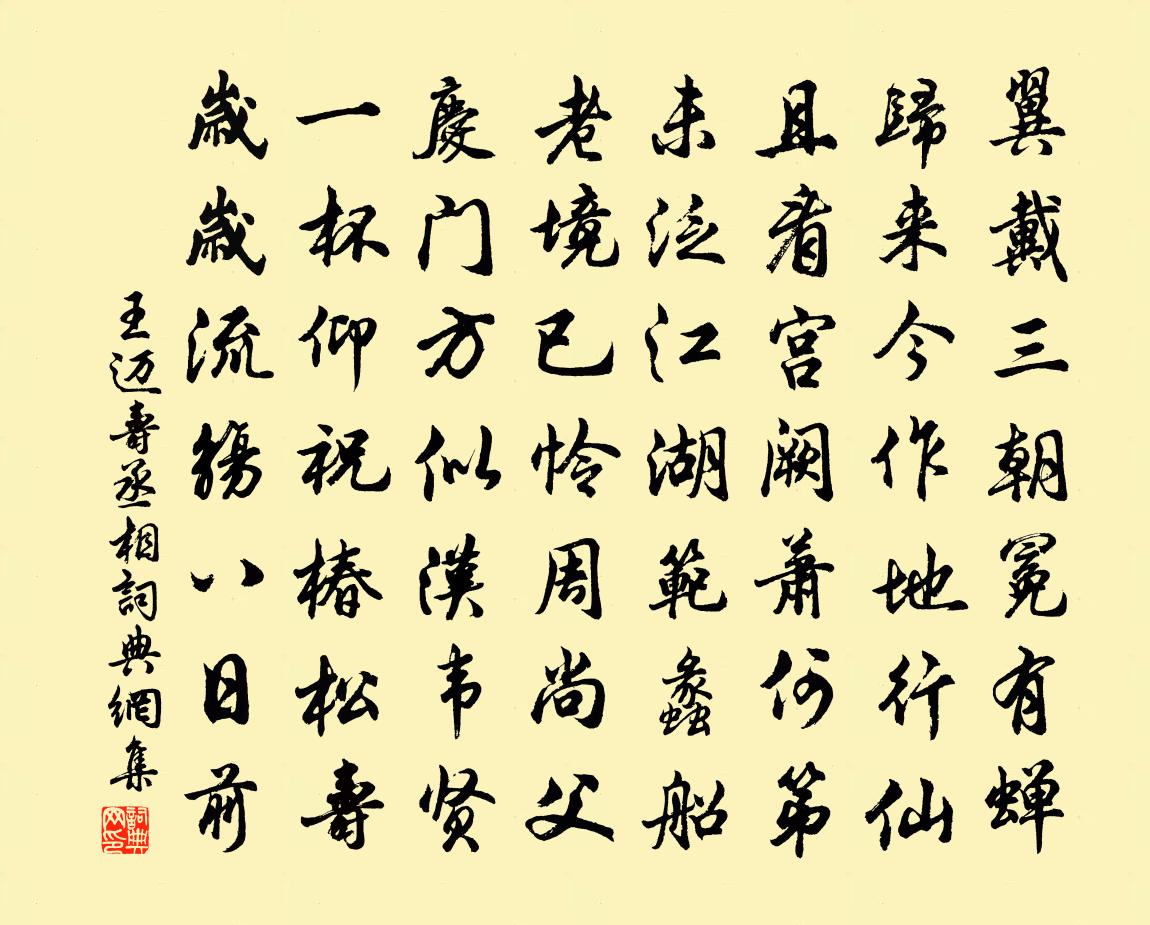 翼戴三朝冕有蝉
歸来今作地行仙
且看宫阙萧何第
未泛江湖範蠡船
老境已怜周尚父
慶门方似漢韦贤
一杯仰祝椿松壽
歳歳流觴八日前
王迈壽丞相詞典網集
詞典网印